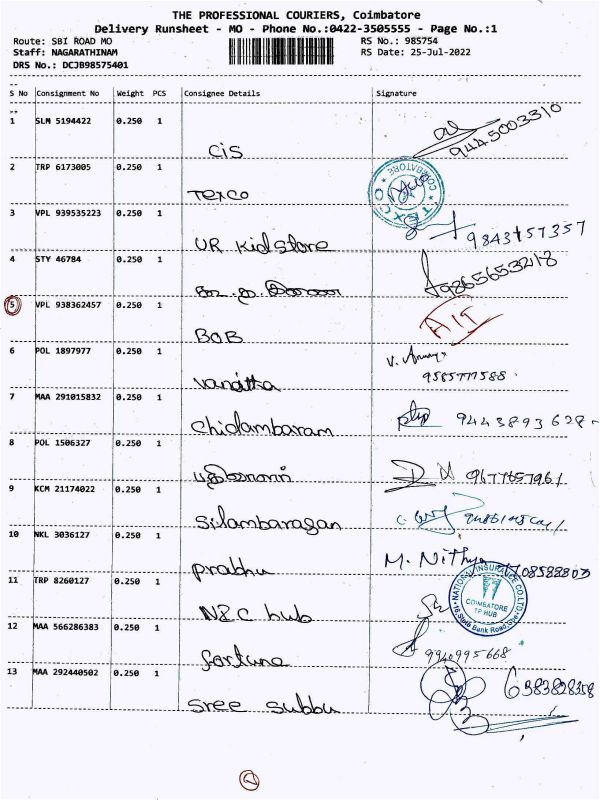 THE PROFESSIONAL COURIERS, Coimbatore
Delivery Runsheet - MO - Phone No.:0422-3505555 - Page No.:1
Route: SBI ROAD MO
RS No.: 985754
Staff: NAGARATHINAM
RS Date: 25-Jul-2022
DRS No.: DCJB98575401
S No Consignment No Weight PCS Consignee Details Signature
1 SLM 5194422 0.250 1 CIS 9445003310
2 TRP 6173005 0.250 1 Texco
TEXCO COIMBATORE
3 VPL 939535223 0.250 1 UR Kid store 9843757357
4 STY 46784 0.250 1 9865653218
5 VPL 938362457 0.250 1 BOB AIT
6 POL 1897977 0.250 1 vanitha V. 9585777588
7 MAA 291015832 0.250 1 Chidambaram 9443893628
8 POL 1506327 0.250 1 9677657961
9 KCM 21174022 0.250 1 Silambarasan
10 NKL 3036127 0.250 1 prabhu M. Nithya
11 TRP 8260127 0.250 1 NIC hub
NATIONAL INSURANCE CO.LTD.
COIMBATORE
TP HUB
State Bank Road
12 MAA 566286383 0.250 1 fortune 9940995668
13 MAA 292440502 0.250 1 Sree Subbu 6383828358